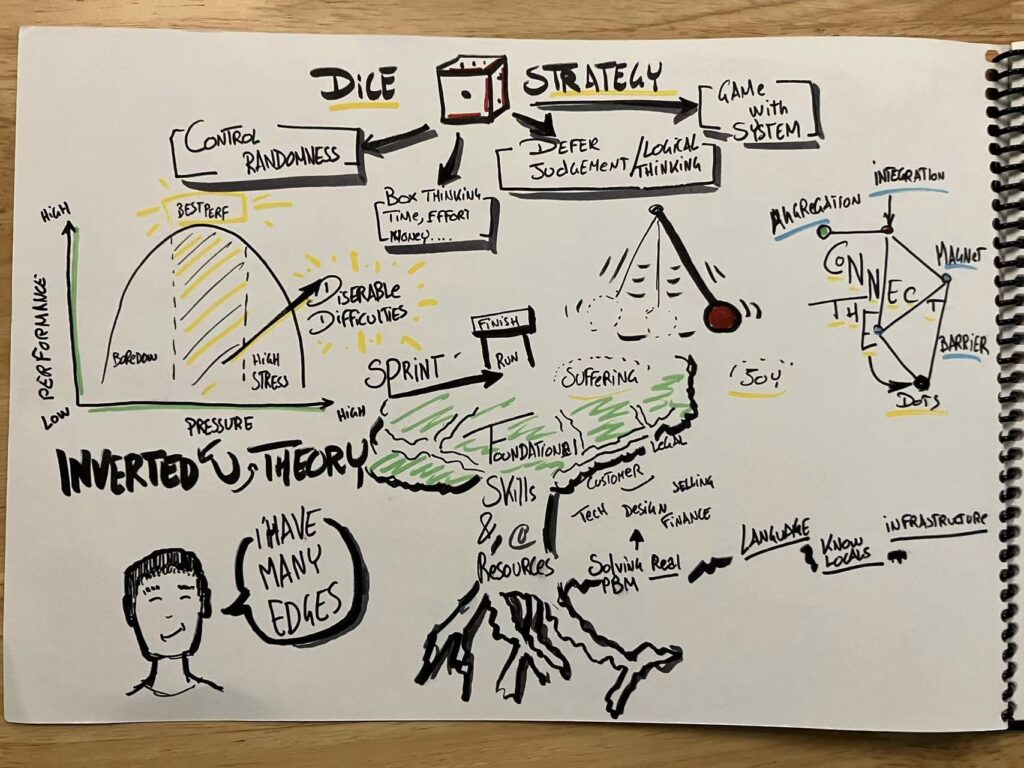 DiCE STRATEGY
CONTROL
RANDOMNESS
BOX THINKING
TIME, EFFORT
MONEY....
DEFER
JUDGEMENT / LOGICAL
THINKING
GAME
WITH
SYSTEM
HIGH
PERFORMANCE
LOW
BEST PERF
BOREDOM
HIGH
STRESS
PRESSURE
HIGH
DISERABLE
DIFFICULTIES
INVERTED "U" THEORY
SPRINT
FINISH
RUN
SUFFERING
JOY
INTEGRATION
AGGREGATION
MAGNET
BARRIER
CONNECT
THE
DOTS
FOUNDATIONAL
SKills
&
Resources
LEGAL
CUSTOMER
SELLING
TECH DESIGN
FINANCE
Solving Real
PBM
LANGUAGE
KNOW
LOCALS
INFRASTRUCTURE
i HAVE
MANY
EDGES